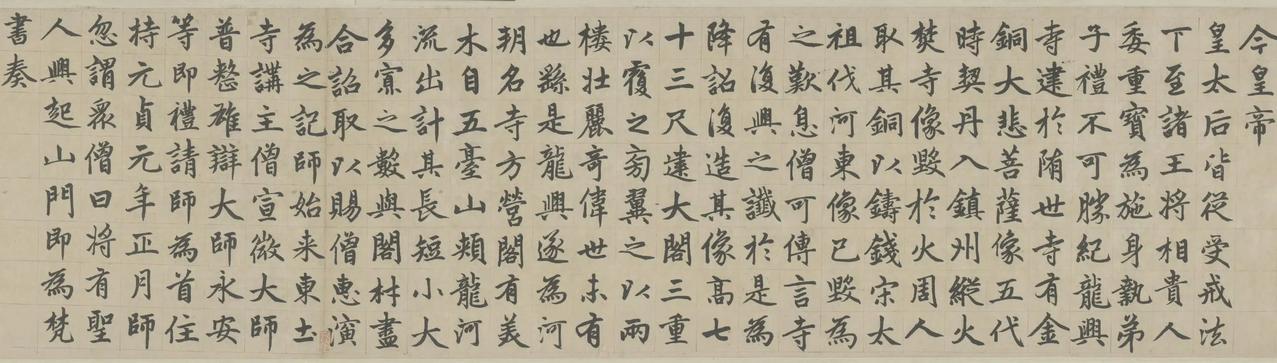 今皇帝
皇太后皆從受戒法
下至諸王將相貴人
委重寶為施身執弟
子禮不可勝紀龍興
寺建於隋世寺有金
銅大悲菩薩像五代
時契丹入鎮州縱火
焚寺像毀於火周人
取其銅以鑄錢宋太
祖伐河東像已毀為
之歎息僧可傳言寺
有復興之讖於是為
降詔復造其像高七
十三尺建大閣三重
以覆之旁翼之以兩
樓壯麗奇偉世未有
也繇是龍興遂為河
朔名寺方營閣有美
木自五臺山頰龍河
流出計其長短小大
多寡之數與閣材盡
合詔取以賜僧惠演
為之記師始来東土
寺講主僧宣微大師
普整雄辯大師永安
等即禮請師為首住
持元貞元年正月師
忽謂眾僧曰將有聖
人興起山門即為梵
書奏